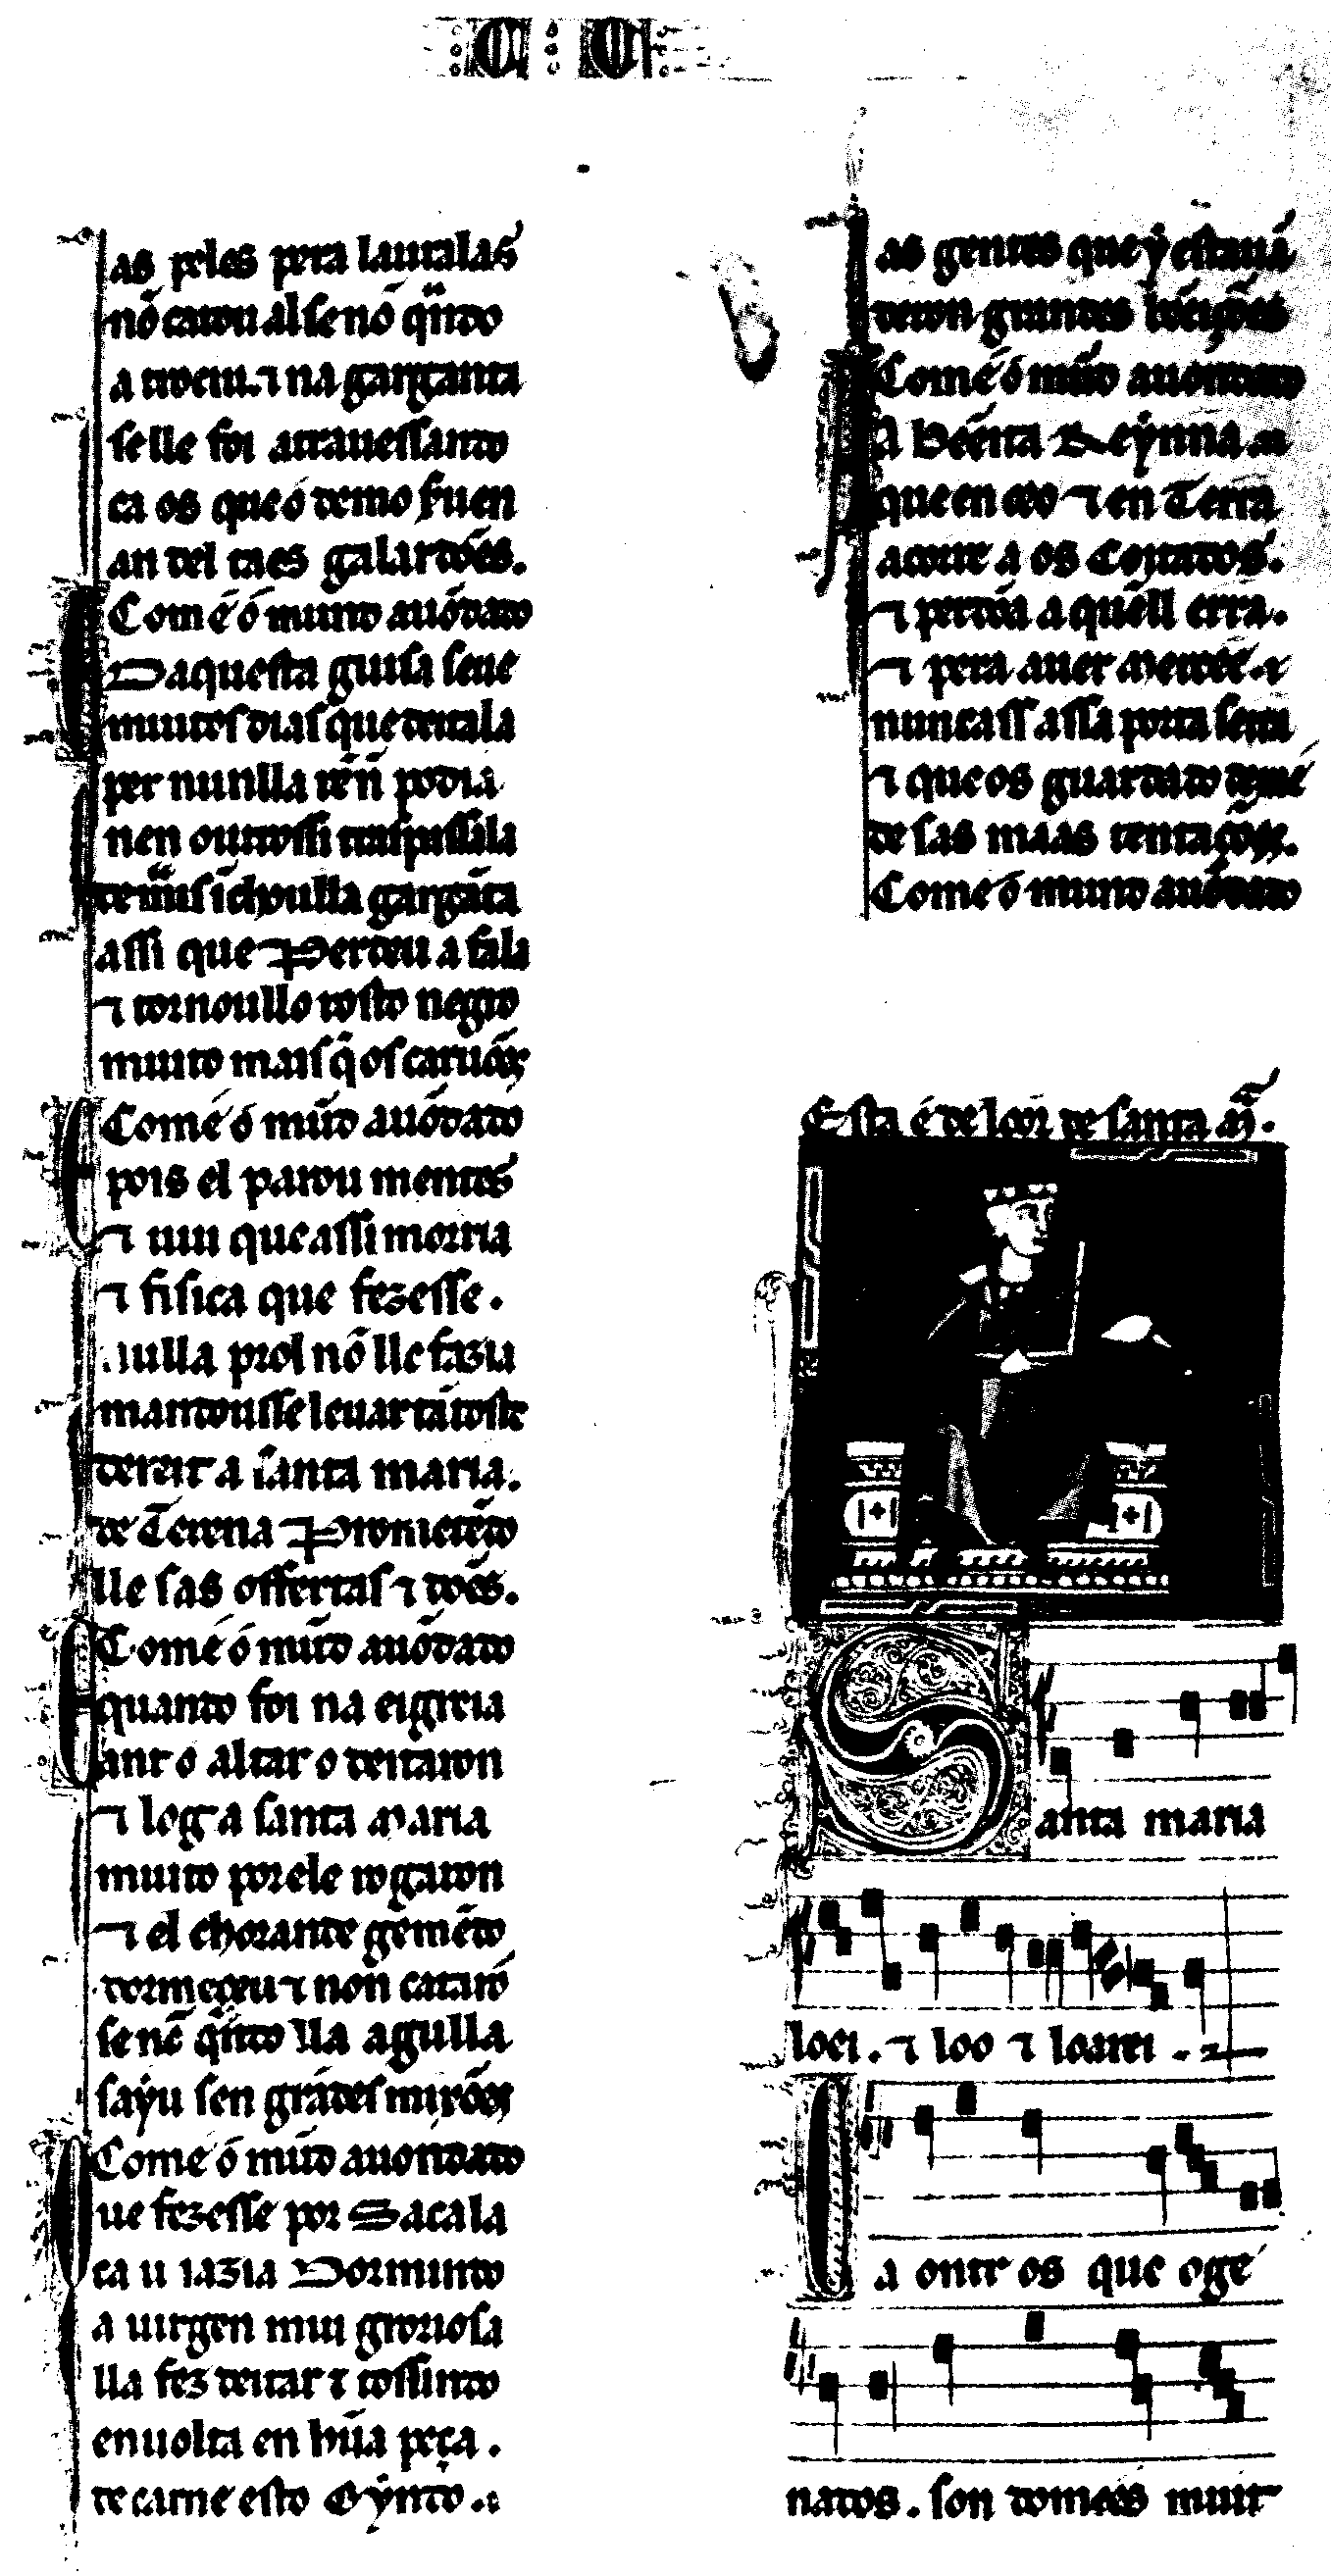 as peles pera laualas
nõ catou al se nõ q̃ndo
a trociu. ⁊ na garganta
selle foi atrauessando
ca os que ó demo seruen
an del taes galardões.
Comé ó mundo auõdado
Daquesta guisa seue
muitos dias que deitala
per nunlla rẽn podia
nen outrossi traspassala
assi que Perdeu a fala
⁊ tornoullo rosto negro
muito mais q̃ os caruões
Comé ó mũdo auõdado
pois el parou mentes
⁊ uiu que assi morria
⁊ fisica que fezesse.
nulla prol nõ lle fazia
mandousse leuar tãtoste
dereit a santa maria.
de Terena Prometẽdo
lle sas offertas ⁊ dões.
Comé ó mũdo auõdado
quando foi na eigreia
ant o altar o deitaron
⁊ log a santa Maria
muito por ele rogaron
⁊ el chorando gemẽdo
dormeçeu ⁊ non catarõ
se nõ q̃ndo lla agulla
sayu sen grãdes mixões
Comé ó mũdo auondado
ue fezesse por Sacala
ca u iazia Dormindo
a uirgen mui groriosa
lla fez deitar ⁊ tossindo
enuolta en hũa peça.
de carne esto Oyndo..
as gentes que y estauã
deron grandes bẽeições
Comé ó mũdo auondado
A Bẽeita Reynna
que en ceo ⁊ en Terra
acorre a os Coytados.
⁊ perdõa a quell erra.
⁊ pera auer Mercee.
nuncass assa porta serra
⁊ que os guardado demé
de sas maas tentações.
Comé ó mundo auõdado
Esta é de loor de santa Mª.
Santa maria
loei. ⁊ loo ⁊ loarei.
a ontr os que oge
nados. son domees muit